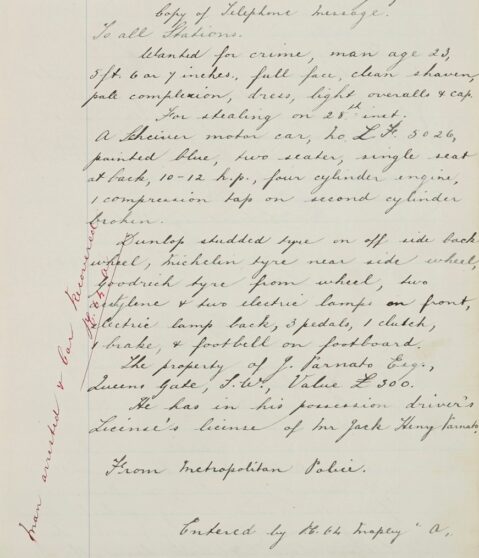 Copy of Telephone Message.
To all Stations.
Wanted for crime, man age 23,
5ft. 6 or 7 inches, full face, clean shaven,
pale complexion, dress, light overalls & cap.
For stealing on 28th inst.
A motor car, no. L.F. 3026,
painted blue, two seater, single seat
at back, 10-12 h.p., four cylinder engine,
1 compression tap on second cylinder
broken.
Dunlop studded tyre on off side back
wheel, Michelin tyre near side wheel,
Goodrich tyre from wheel, two
acetylene & two electric lamps on front,
electric lamp back, 3 pedals, 1 clutch,
1 brake, & footbell on footboard.
The property of J. Varnato Esq.,
Queens Gate, S.W., Value £300.
He has in his possession driver's
License's license of Mr Jack Henry Varnato.
From Metropolitan Police.
Entered by
Man arrested & Car Recovered